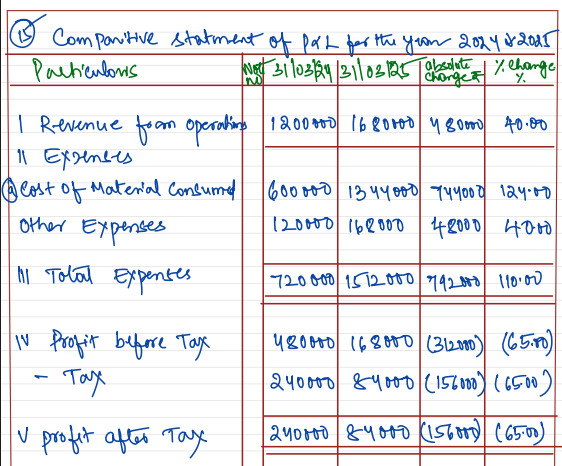 15 Comparitive statement of P&L for the year 2024 & 2025
Particulars Note no 31/03/24 31/03/25 absolute change ₹ % change %
I Revenue from operations 1200000 1680000 480000 40.00
II Expenses
(a) Cost of Material Consumed 600000 1344000 744000 124.00
Other Expenses 120000 168000 48000 40.00
III Total Expenses 720000 1512000 792000 110.00
IV Profit before Tax 480000 168000 (312000) (65.00)
- Tax 240000 84000 (156000) (6500)
V profit after Tax 240000 84000 (156000) (65.00)